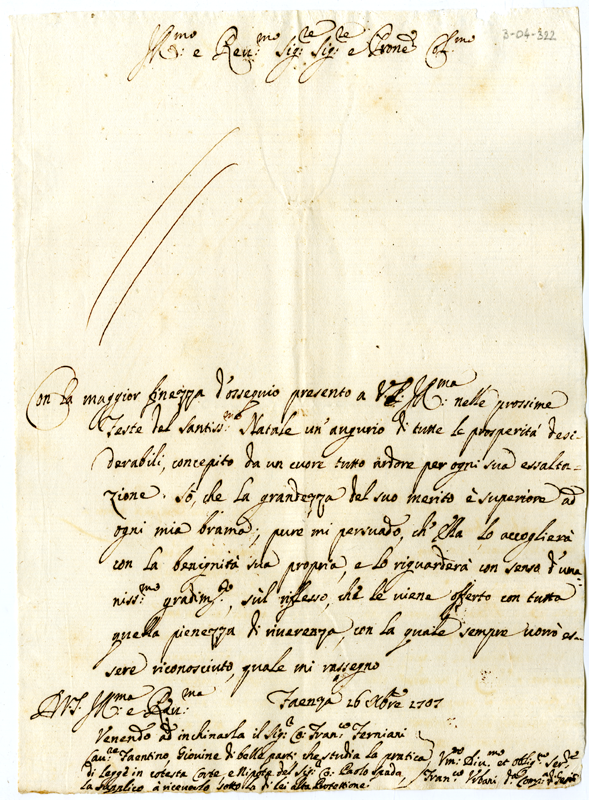 3-04-322
Ill:mo e Rev:mo Sig:re Sig:re e Prone Col:mo
Con la maggior finezza d'ossequio presento a V.S. Ill:ma nelle prossime
Feste del Santiss:mo Natale un'augurio di tutte le prosperità desi-
derabili, concepito da un cuore tutto ardore per ogni sua essalta-
zione. Sò, che la grandezza del suo merito è superiore ad
ogni mia brama; pure mi persuado, ch'Ella lo accoglierà
con la benignità sua propria, e lo riguarderà con senso d'uma-
niss:mo gradim:to, sul riflesso, che le viene offerto con tutta
quella pienezza di riverenza, con la quale sempre vorrò es-
sere riconosciuto, quale mi rassegno
D V.S. Ill:ma e Rev:ma Faenza 26 Xbre 1707
Venendo ad inchinarla il Sig:r Co: Fran:co Ferniani
Cav:re Faentino, Giovine di belle parti, che studia la prattica
di Legge in cotesta Corte, e Nipote del Sig:r Co: Paolo Spada,
la supplico à riceverlo sotto la di lei alta Protettione.
Um:mo Div:mo et Obl:mo Ser:re
Fran:co